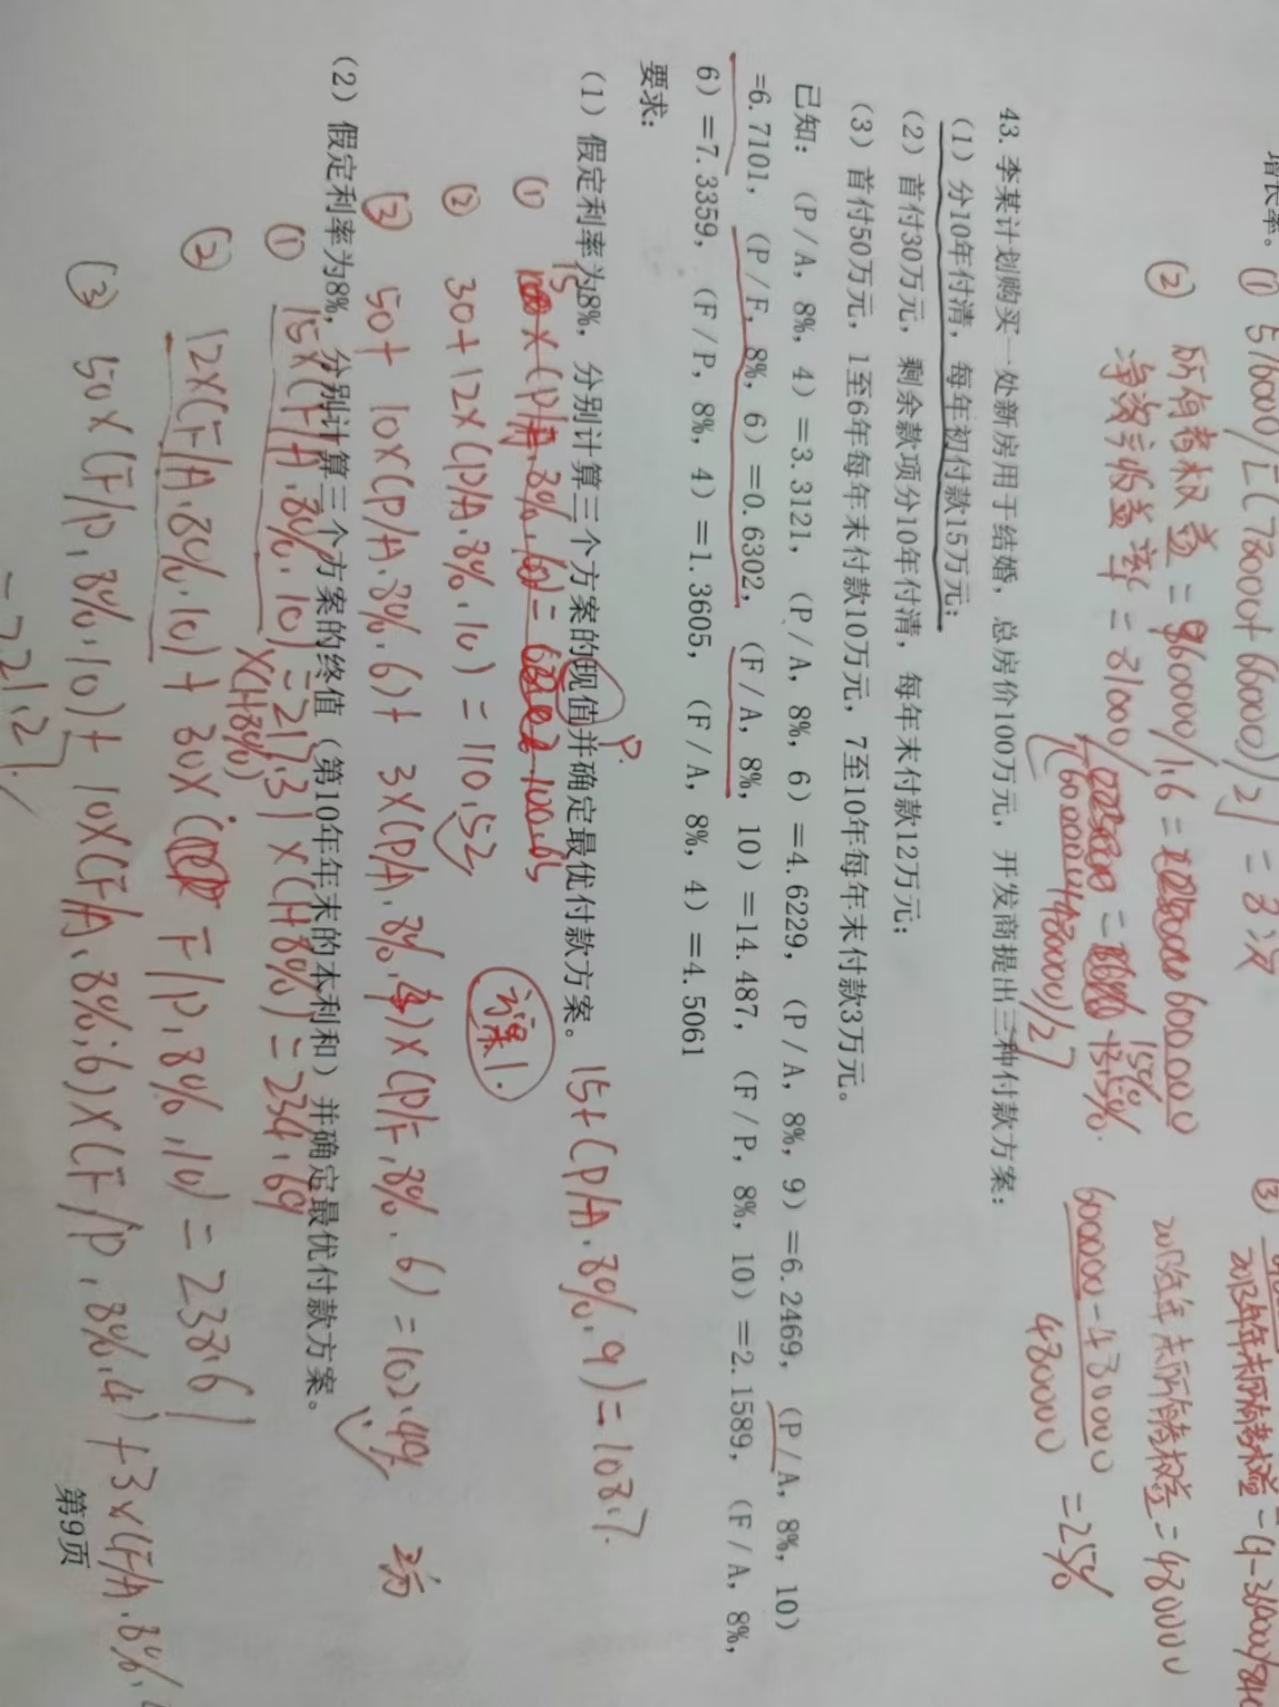 增长率。 ① 516000/[(72000+66000)/2] = 8次
② 所有者权益 = 960000/1.6 = 600000
净资产收益率 = 81000/[(600000+480000)/2] = 15%
600000-480000 = 25%
480000
43. 李某计划购买一处新房用于结婚，总房价100万元，开发商提出三种付款方案：
（1）分10年付清，每年初付款15万元；
（2）首付30万元，剩余款项分10年付清，每年末付款12万元；
（3）首付50万元，1至6年每年末付款10万元，7至10年每年末付款3万元。
已知：（P/A，8%，4）=3.3121，（P/A，8%，6）=4.6229，（P/A，8%，9）=6.2469，（P/A，8%，10）
=6.7101，（P/F，8%，6）=0.6302，（F/A，8%，10）=14.487，（F/P，8%，10）=2.1589，（F/A，8%，
6）=7.3359，（F/P，8%，4）=1.3605，（F/A，8%，4）=4.5061
要求：
（1）假定利率为8%，分别计算三个方案的现值并确定最优付款方案。 15+(P/A.8%.9)=108.7
P.
① 15
② 30+12×(P/A.8%.10) = 110.52
方案1.
③ 50+ 10×(P/A.8%.6)+ 3×(P/A.8%.4)×(P/F,8%.6) = 102.49
（2）假定利率为8%，分别计算三个方案的终值（第10年年末的本利和）并确定最优付款方案。
① 15×(F/A.8%.10) =217.31×(1+8%) = 234.69
×(1+8%)
② 12×(F/A.8%.10)+ 30×(F/P,8%,10) = 238.61
③ 50×(F/P,8%,10)+ 10×(F/A,8%,6)×(F/P,8%,4)+3×(F/A.8%,
= 221.2
第9页